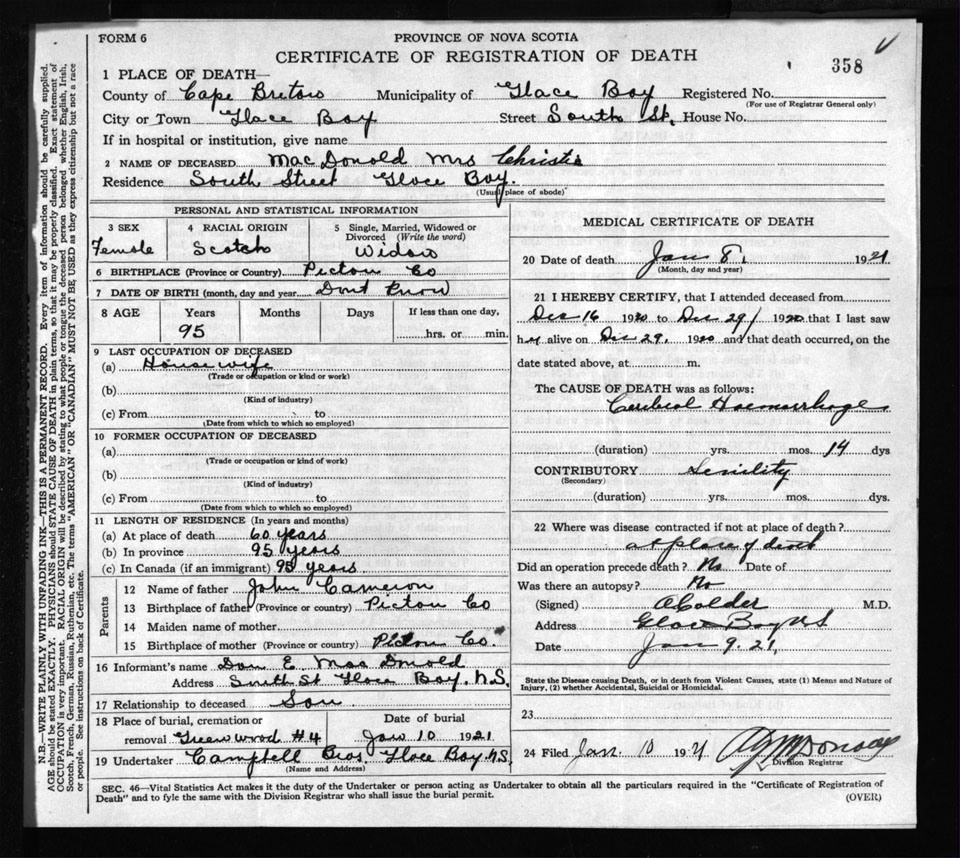 FORM 6
PROVINCE OF NOVA SCOTIA
CERTIFICATE OF REGISTRATION OF DEATH
358
1 PLACE OF DEATH—
County of Cape Breton Municipality of Glace Bay Registered No.
(For use of Registrar General only)
City or Town Glace Bay Street South St. House No.
If in hospital or institution, give name
2 NAME OF DECEASED MacDonald Mrs Christie
Residence South Street Glace Bay.
(Usual place of abode)
PERSONAL AND STATISTICAL INFORMATION
3 SEX
Female
4 RACIAL ORIGIN
Scotch
5 Single, Married, Widowed or Divorced (Write the word)
Widow
6 BIRTHPLACE (Province or Country) Picton Co
7 DATE OF BIRTH (month, day and year Dont Know
8 AGE Years Months Days If less than one day,
95 hrs. or min.
9 LAST OCCUPATION OF DECEASED
(a) House wife
(Trade or occupation or kind or work)
(b)
(Kind of industry)
(c) From to
(Date from which to which so employed)
10 FORMER OCCUPATION OF DECEASED
(a)
(Trade or occupation or kind of work)
(b)
(Kind of industry)
(c) From to
(Date from which to which so employed)
11 LENGTH OF RESIDENCE (In years and months)
(a) At place of death 60 years
(b) In province 95 years
(c) In Canada (if an immigrant) 95 years
Parents
12 Name of father John Cameron
13 Birthplace of father (Province or country) Picton Co
14 Maiden name of mother
15 Birthplace of mother (Province or country) Picton Co.
16 Informant's name Dan E. MacDonald
Address South St Glace Bay. N.S.
17 Relationship to deceased Son
18 Place of burial, cremation or removal Greenwood #4
Date of burial
Jan 10 1921
19 Undertaker Campbell Bros. Glace Bay N.S.
(Name and Address)
MEDICAL CERTIFICATE OF DEATH
20 Date of death Jan 8, 1921
(Month, day and year)
21 I HEREBY CERTIFY, that I attended deceased from
Dec 16 1920 to Dec 29/ 1920 that I last saw
her alive on Dec 29, 1920 and that death occurred, on the
date stated above, at m.
The CAUSE OF DEATH was as follows:
Cerebral Haemorrhage
(duration) yrs. mos. 14 dys
CONTRIBUTORY Senility
(Secondary)
(duration) yrs. mos. dys.
22 Where was disease contracted if not at place of death?
at place of death
Did an operation precede death? No Date of
Was there an autopsy? No
(Signed) A Calder M.D.
Address Glace Bay NS
Date Jan 9. 21,
State the Disease causing Death, or in death from Violent Causes, state (1) Means and Nature of
Injury, (2) whether Accidental, Suicidal or Homicidal.
23
24 Filed Jan. 10 1921
Division Registrar
SEC. 46—Vital Statistics Act makes it the duty of the Undertaker or person acting as Undertaker to obtain all the particulars required in the "Certificate of Registration of
Death" and to fyle the same with the Division Registrar who shall issue the burial permit.
(OVER)
N.B.—WRITE PLAINLY WITH UNFADING INK—THIS IS A PERMANENT RECORD. Every item of information should be carefully supplied.
AGE should be stated EXACTLY. PHYSICIANS should STATE CAUSE OF DEATH in plain terms, so that it may be properly classified. Exact statement of
OCCUPATION is very important. RACIAL ORIGIN will be described by stating to what people or tongue the deceased person belonged whether English, Irish,
Scotch, French, German, Russian, Ruthenian, etc. The terms "AMERICAN" OR "CANADIAN" MUST NOT BE USED as they express citizenship but not a race
or people. See instructions on back of Certificate.